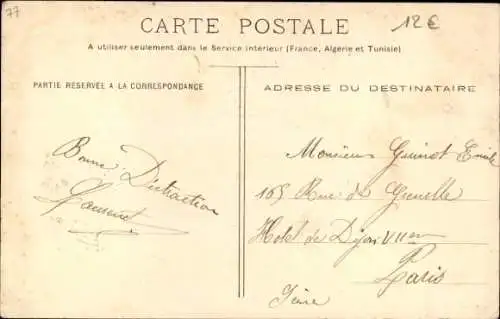 77
12€
CARTE POSTALE
A utiliser seulement dans le Service intérieur (France, Algérie et Tunisie)
PARTIE RÉSERVÉE A LA CORRESPONDANCE
ADRESSE DU DESTINATAIRE
Bonne Distraction
Monsieur Guinot Emile
165 Rue de Grenelle
Hotel de Dijon VII em
Paris